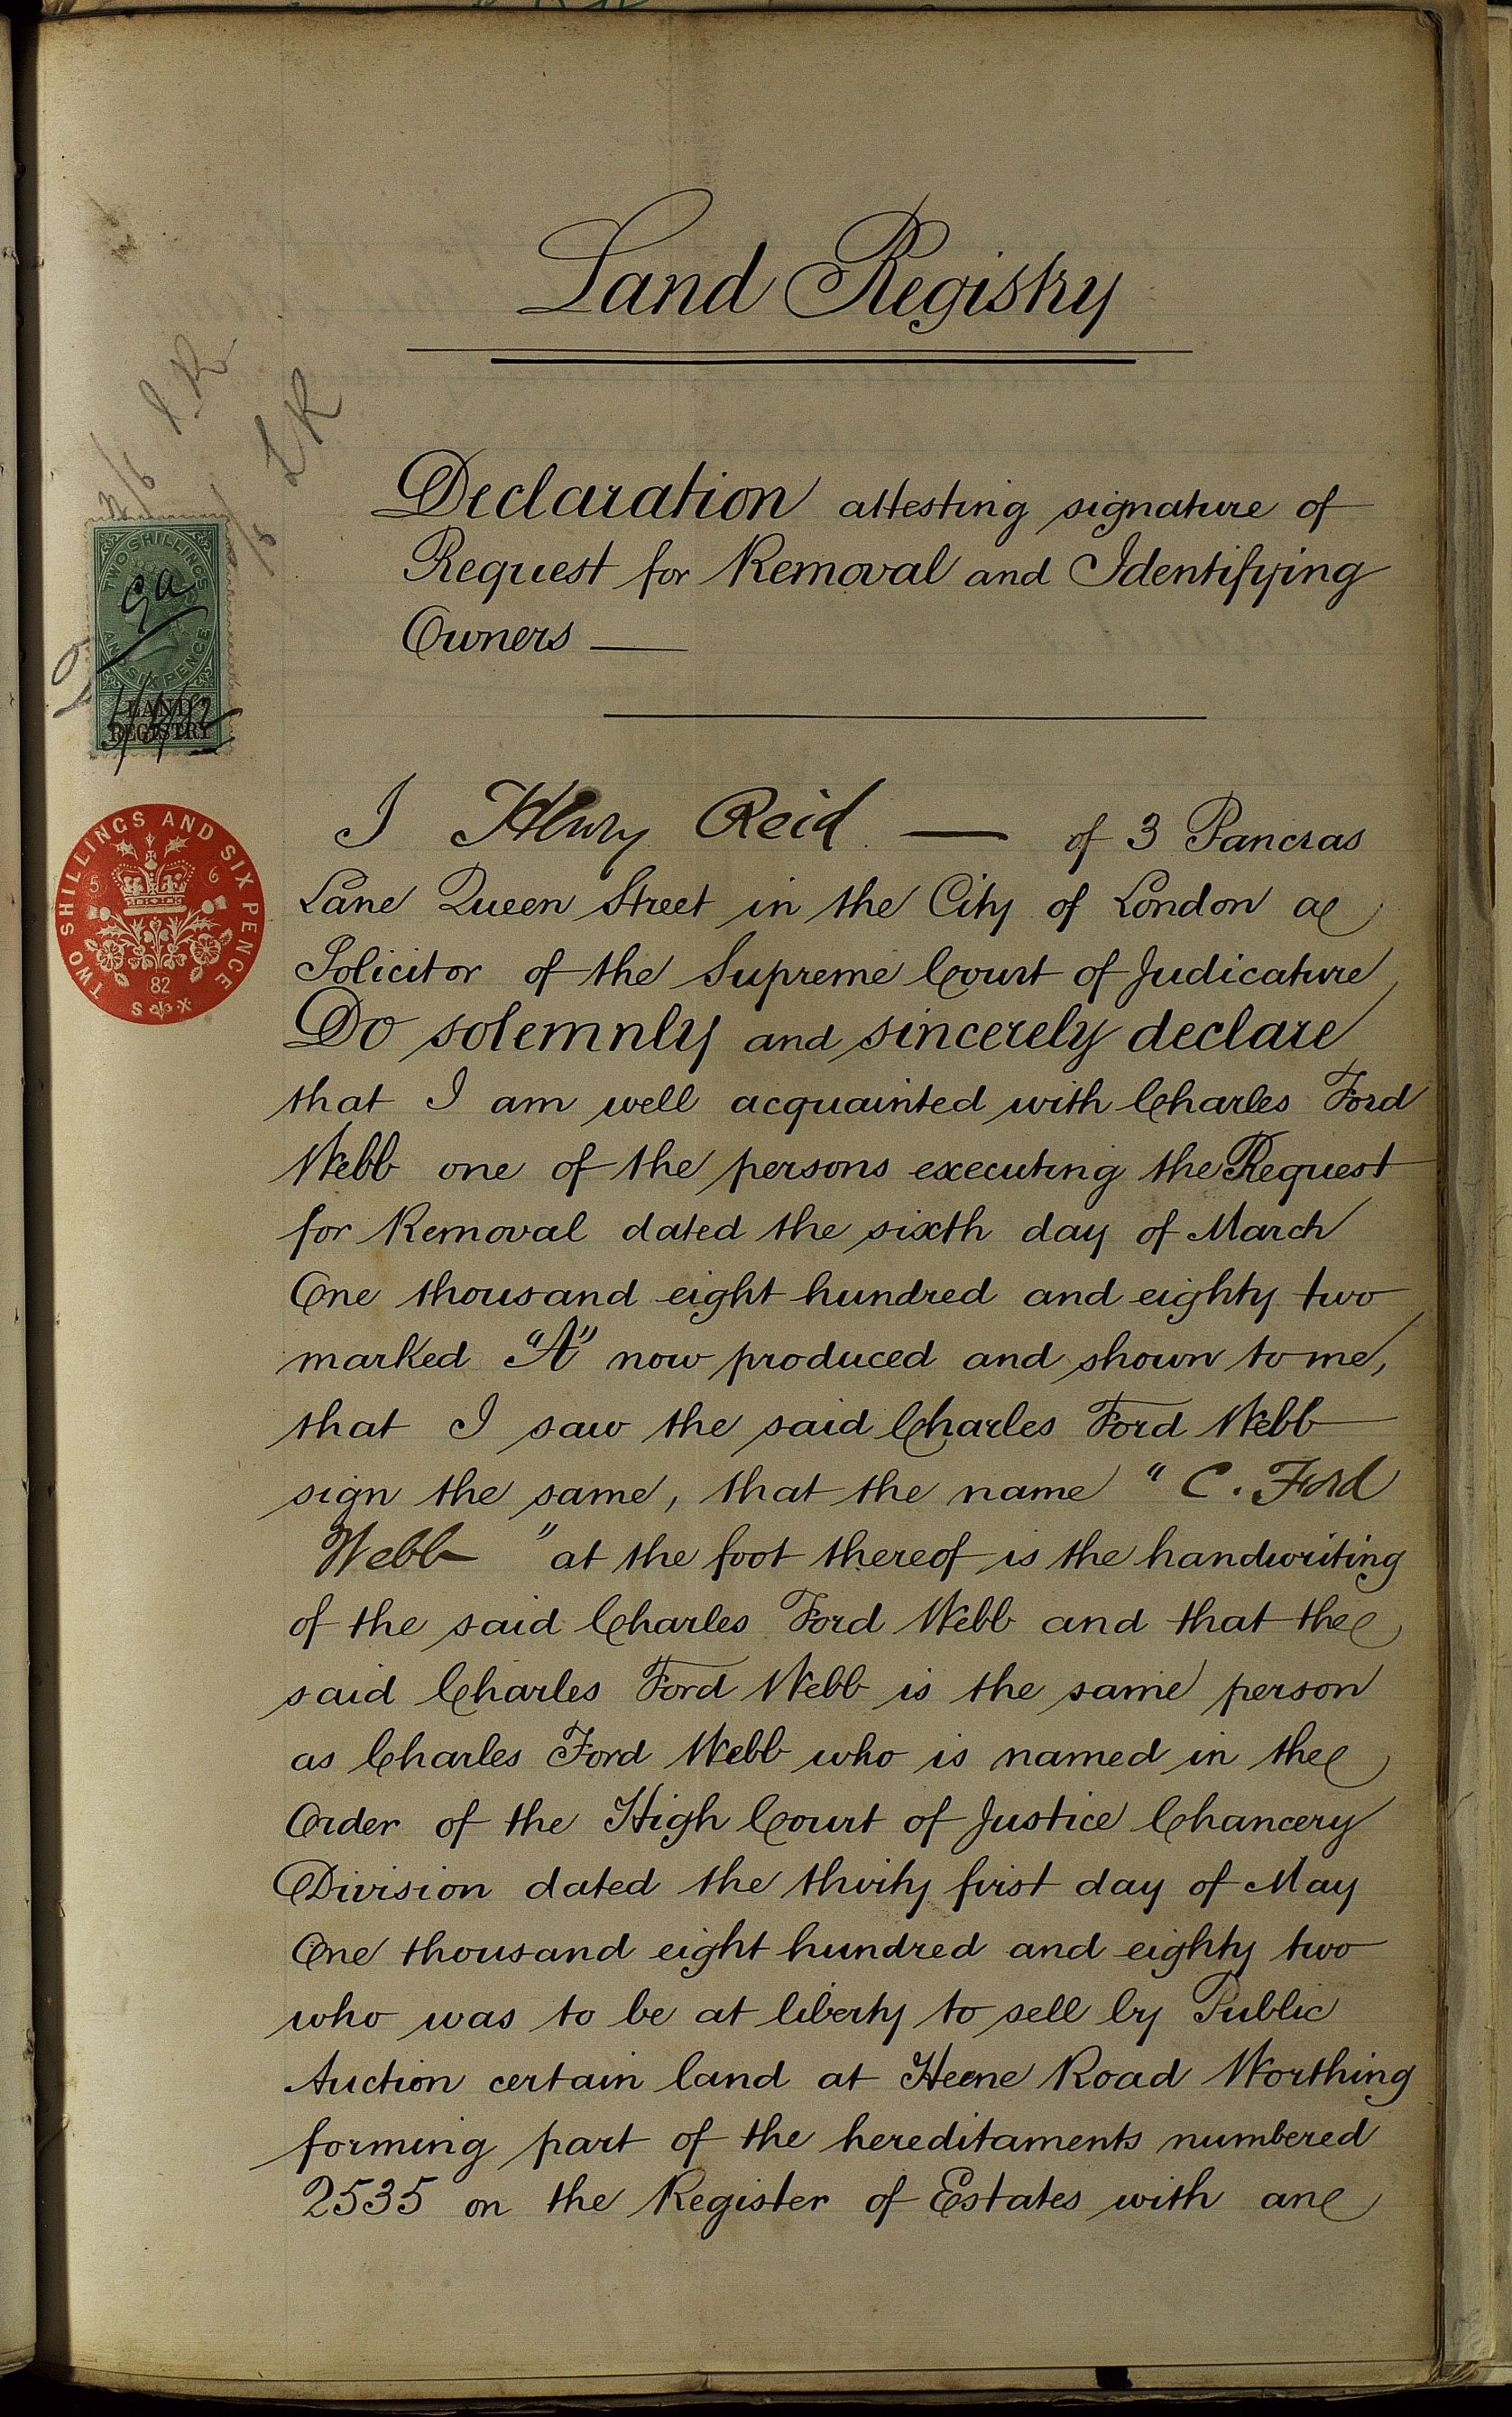 Land Registry
2/6 L R
/6 LR
Declaration attesting signature of
Request for Removal and Identifying
Owners —
TWO SHILLINGS
AND SIX PENCE
LAND
REGISTRY
I Henry Reid — of 3 Pancras
Lane Queen Street in the City of London a
Solicitor of the Supreme Court of Judicature
Do solemnly and sincerely declare
that I am well acquainted with Charles Ford
Webb one of the persons executing the Request
for Removal dated the sixth day of March
One thousand eight hundred and eighty two
marked "A" now produced and shown to me,
that I saw the said Charles Ford Webb
sign the same, that the name "C. Ford
Webb" at the foot thereof is the handwriting
of the said Charles Ford Webb and that the
said Charles Ford Webb is the same person
as Charles Ford Webb who is named in the
Order of the High Court of Justice Chancery
Division dated the thirty first day of May
One thousand eight hundred and eighty two
who was to be at liberty to sell by Public
Auction certain land at Heene Road Worthing
forming part of the hereditaments numbered
2535 on the Register of Estates with an
TWO SHILLINGS AND SIX PENCE
5 6
82
S